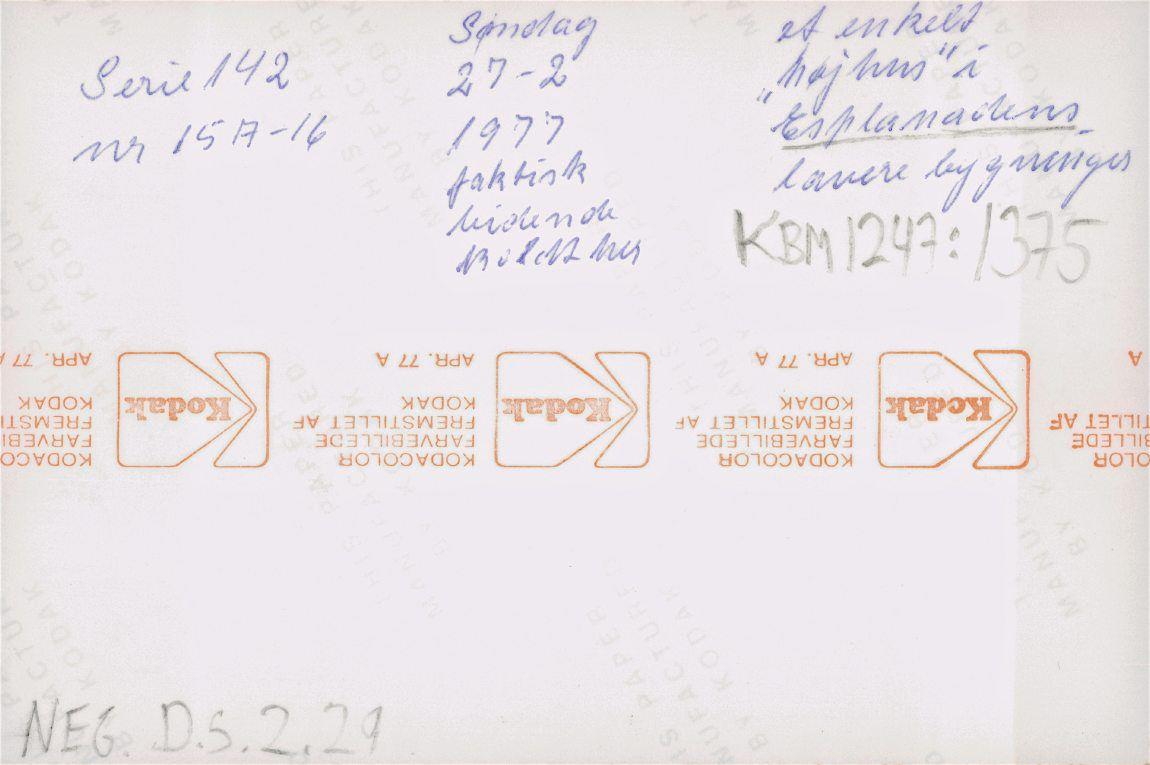 Serie 142
nr 15A-16
Søndag
27-2
1977
faktisk
lidende
koldt her
et enkelt
"højhus" i
Esplanadens
lavere bygninger
KBM 1247:1375
KODACOLOR
FARVEBILLEDE
FREMSTILLET AF
KODAK
APR. 77 A
Kodak
KODACOLOR
FARVEBILLEDE
FREMSTILLET AF
KODAK
APR. 77 A
Kodak
KODACOLOR
FARVEBILLEDE
FREMSTILLET AF
KODAK
APR. 77 A
Kodak
THIS PAPER
MANUFACTURED
BY KODAK
NEG. D.5.2.29